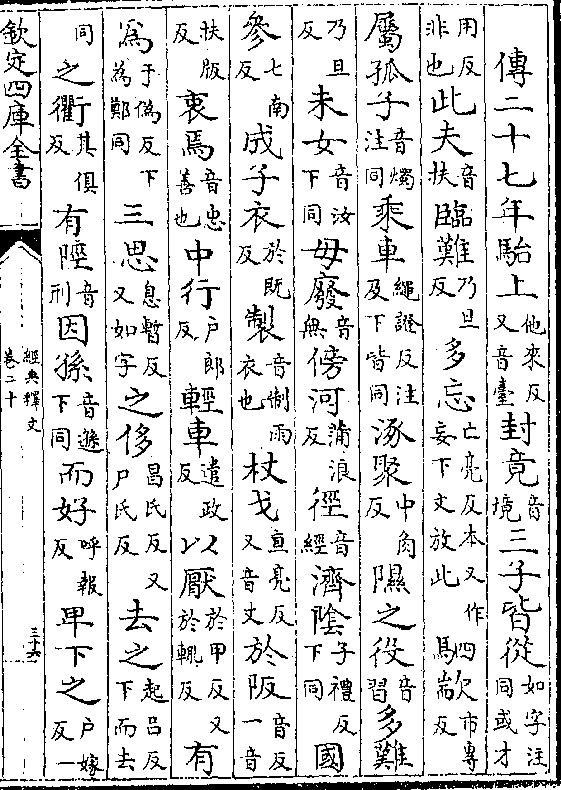 傳二十七年駘上他來反又音臺封竟音境三子皆從如字注同或才
用反非也此夫音扶臨難乃旦反多忘亡亮反本又作妄下文放此駟歂市專反
屬孤子音燭注同乘車繩證反注及下皆同涿聚中角反隰之役音習多難
乃旦反未女音汝下同毋廢音無傍河蒲浪反徑音經濟陰子禮反下同國
參七南反成子衣於既反製音制雨衣也杖戈直亮反又音丈於阪音反一音
扶版反衷焉音忠善也中行户郎反輕車遣政反以厭於甲反又於輒反有
爲于偽反下為鄭同三思息暫反又如字之侈昌氏反又户氏反去之起吕反下而去
同之衢其俱反有陘音刑因孫音遜下同而好呼報反卑下之户嫁反一
欽定四庫全書
經典釋文
卷二十
三十六